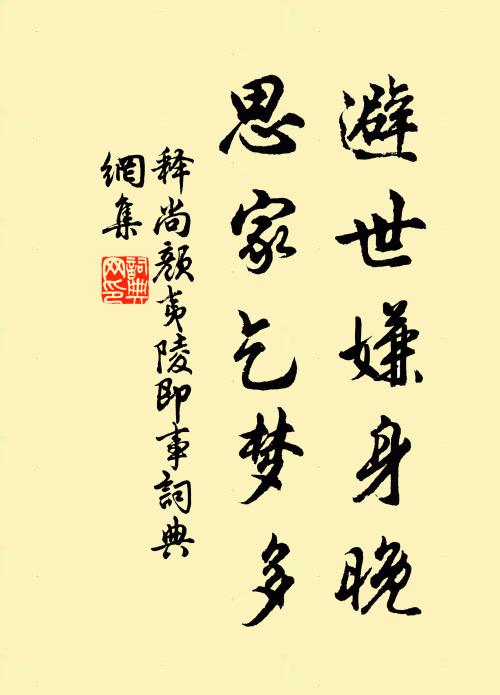 避世嫌身晚
思家乞梦多
释尚颜夷陵即事詞典
網集
詞典网印